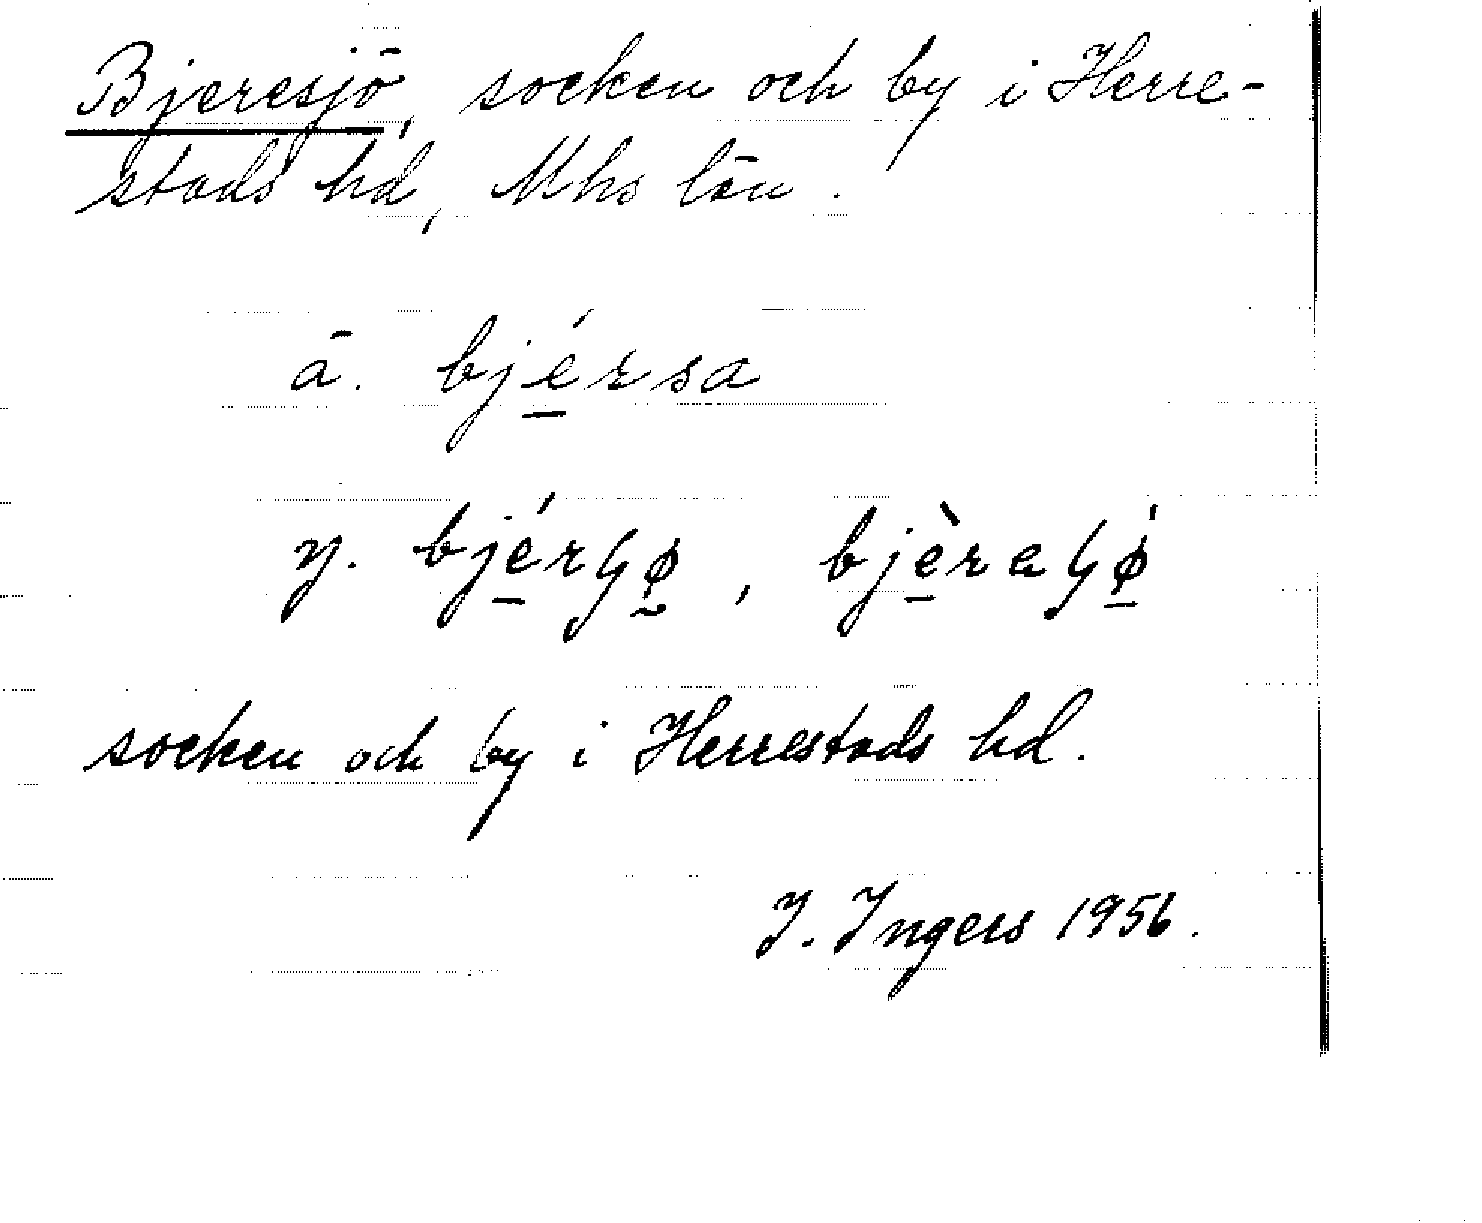 Bjeresjö, socken och by i Herre-
stads hd, Mhs län.
ä. bjé̠rsa
y. bjé̠rʃø̰, bjè̠reʃǿ̠
socken och by i Herrestads hd.
I. Ingers 1956.